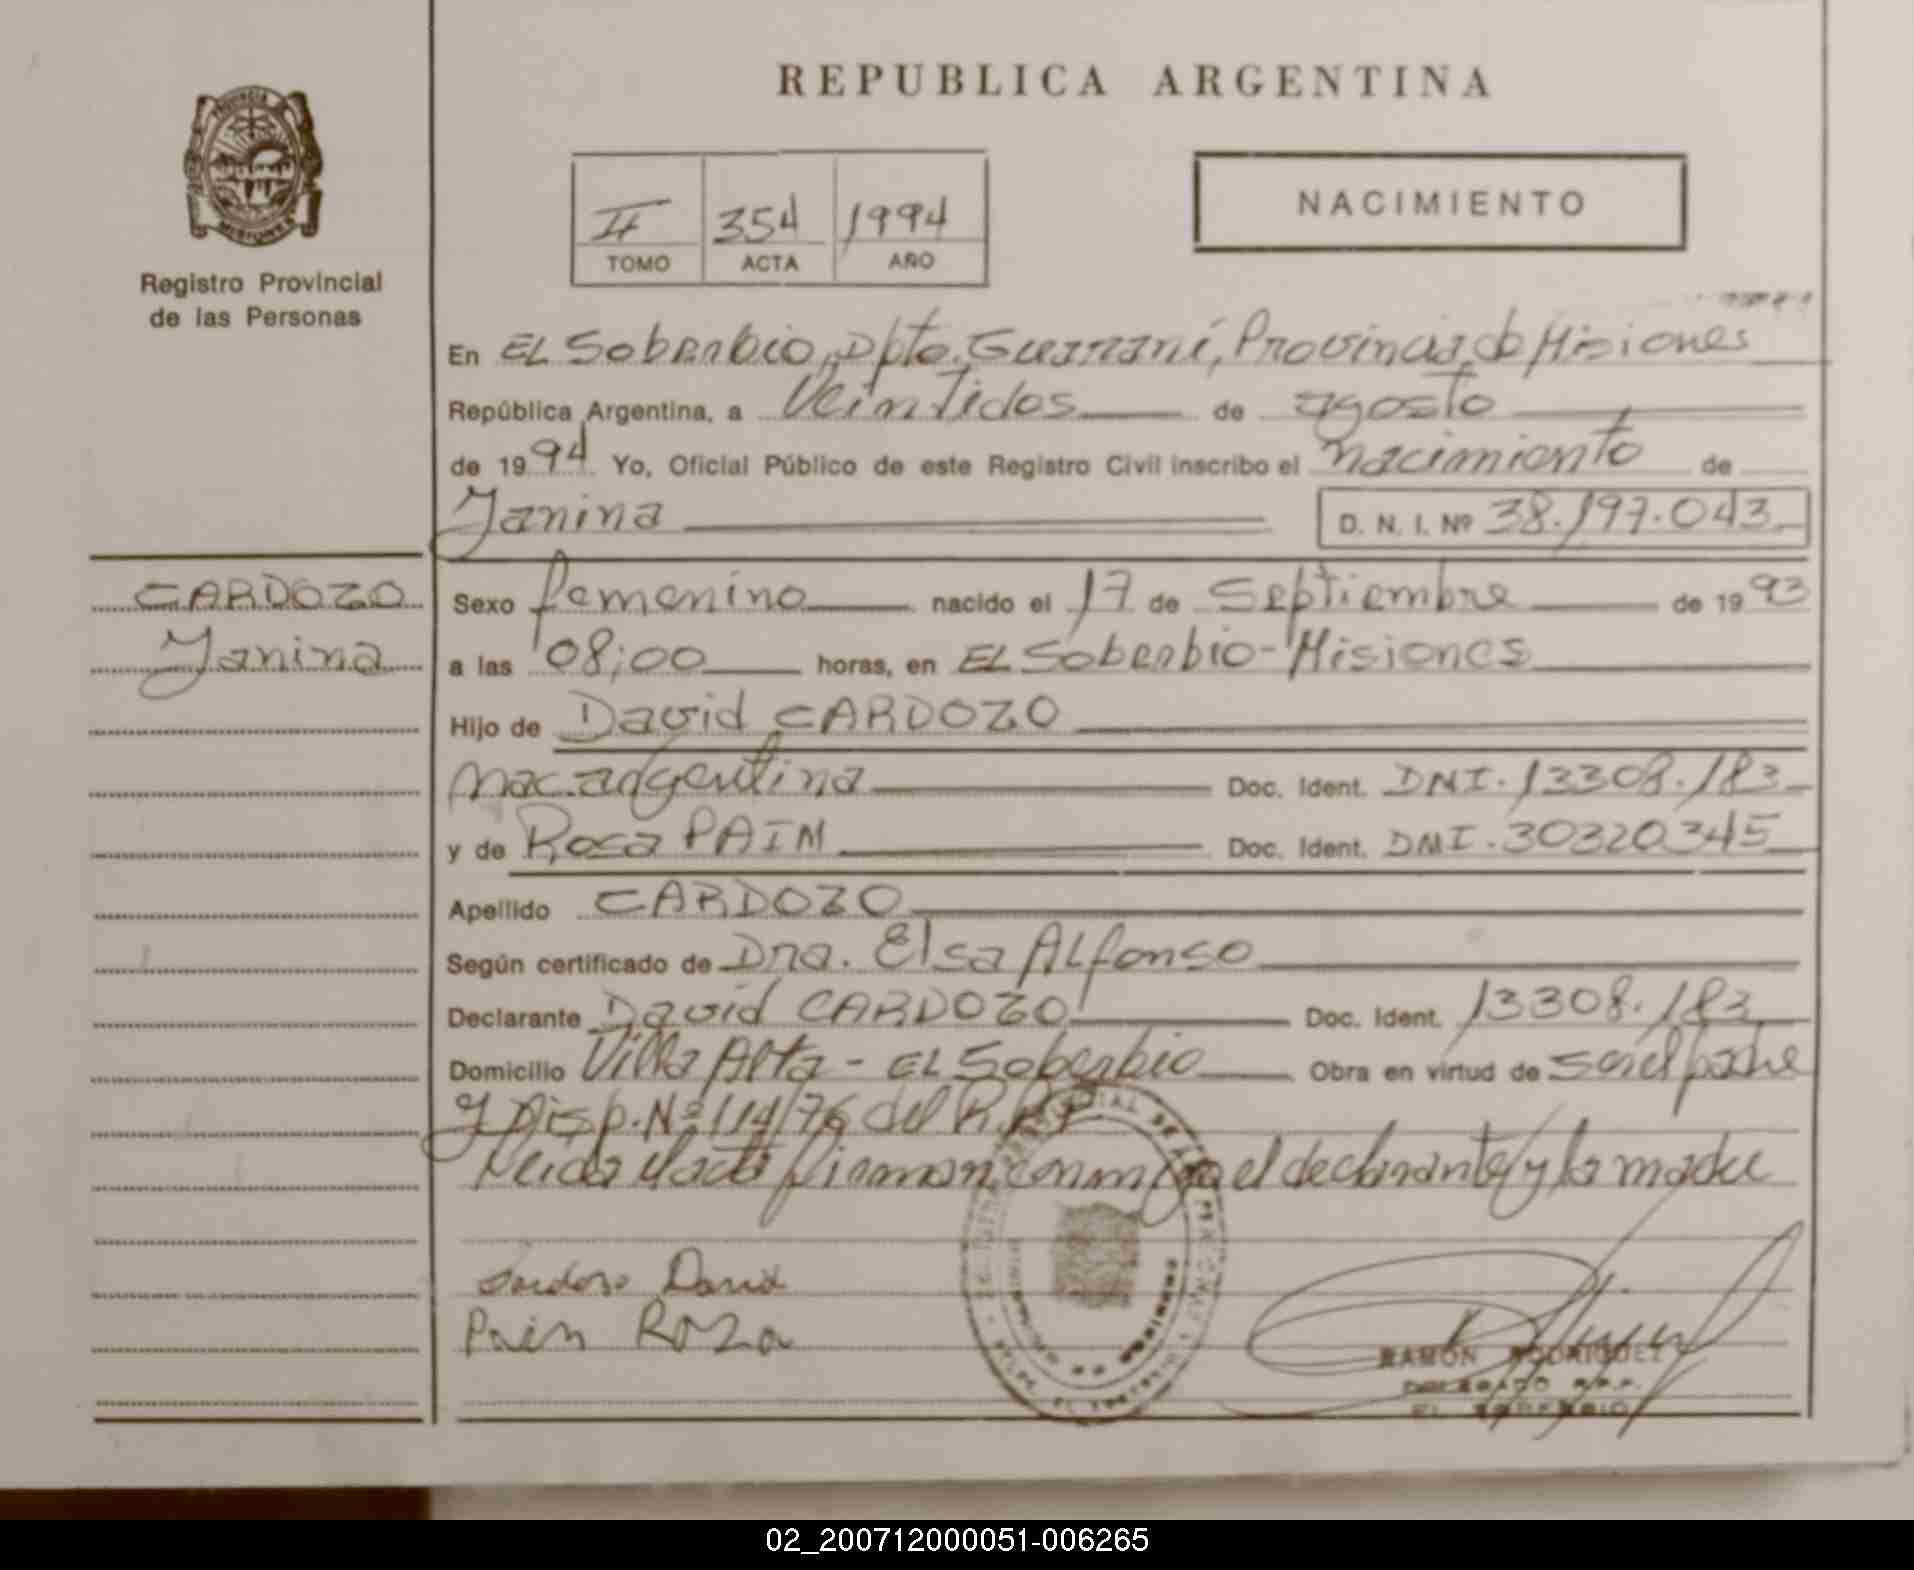 REPUBLICA ARGENTINA
Registro Provincial
de las Personas
II 354 1994
TOMO ACTA AÑO
NACIMIENTO
En EL Soberbio, Dpto. Guaraní, Provincia de Misiones
República Argentina, a Veintidos de agosto
de 1994 Yo, Oficial Público de este Registro Civil inscribo el nacimiento de
Yanina D. N. I. Nº 38.197.043
CARDOZO
Yanina
Sexo femenino nacido el 17 de Septiembre de 1993
a las 08;00 horas, en EL Soberbio-Misiones
Hijo de David CARDOZO
Nac. argentina Doc. Ident. DNI. 13308.183
y de Rosa PAIM Doc. Ident. DNI. 30320345
Apellido CARDOZO
Según certificado de Dra. Elsa Alfonso
Declarante David CARDOZO Doc. Ident. 13308.183
Domicilio Villa Alta - EL Soberbio Obra en virtud de ser el padre
y Disp. Nº 114/76 del R.P.P
Leida el acta firman conmigo el declarante y la madre
David
Pain Roza
RAMON RODRIGUEZ
DELEGADO R.P.P.
EL SOBERBIO
02_200712000051-006265